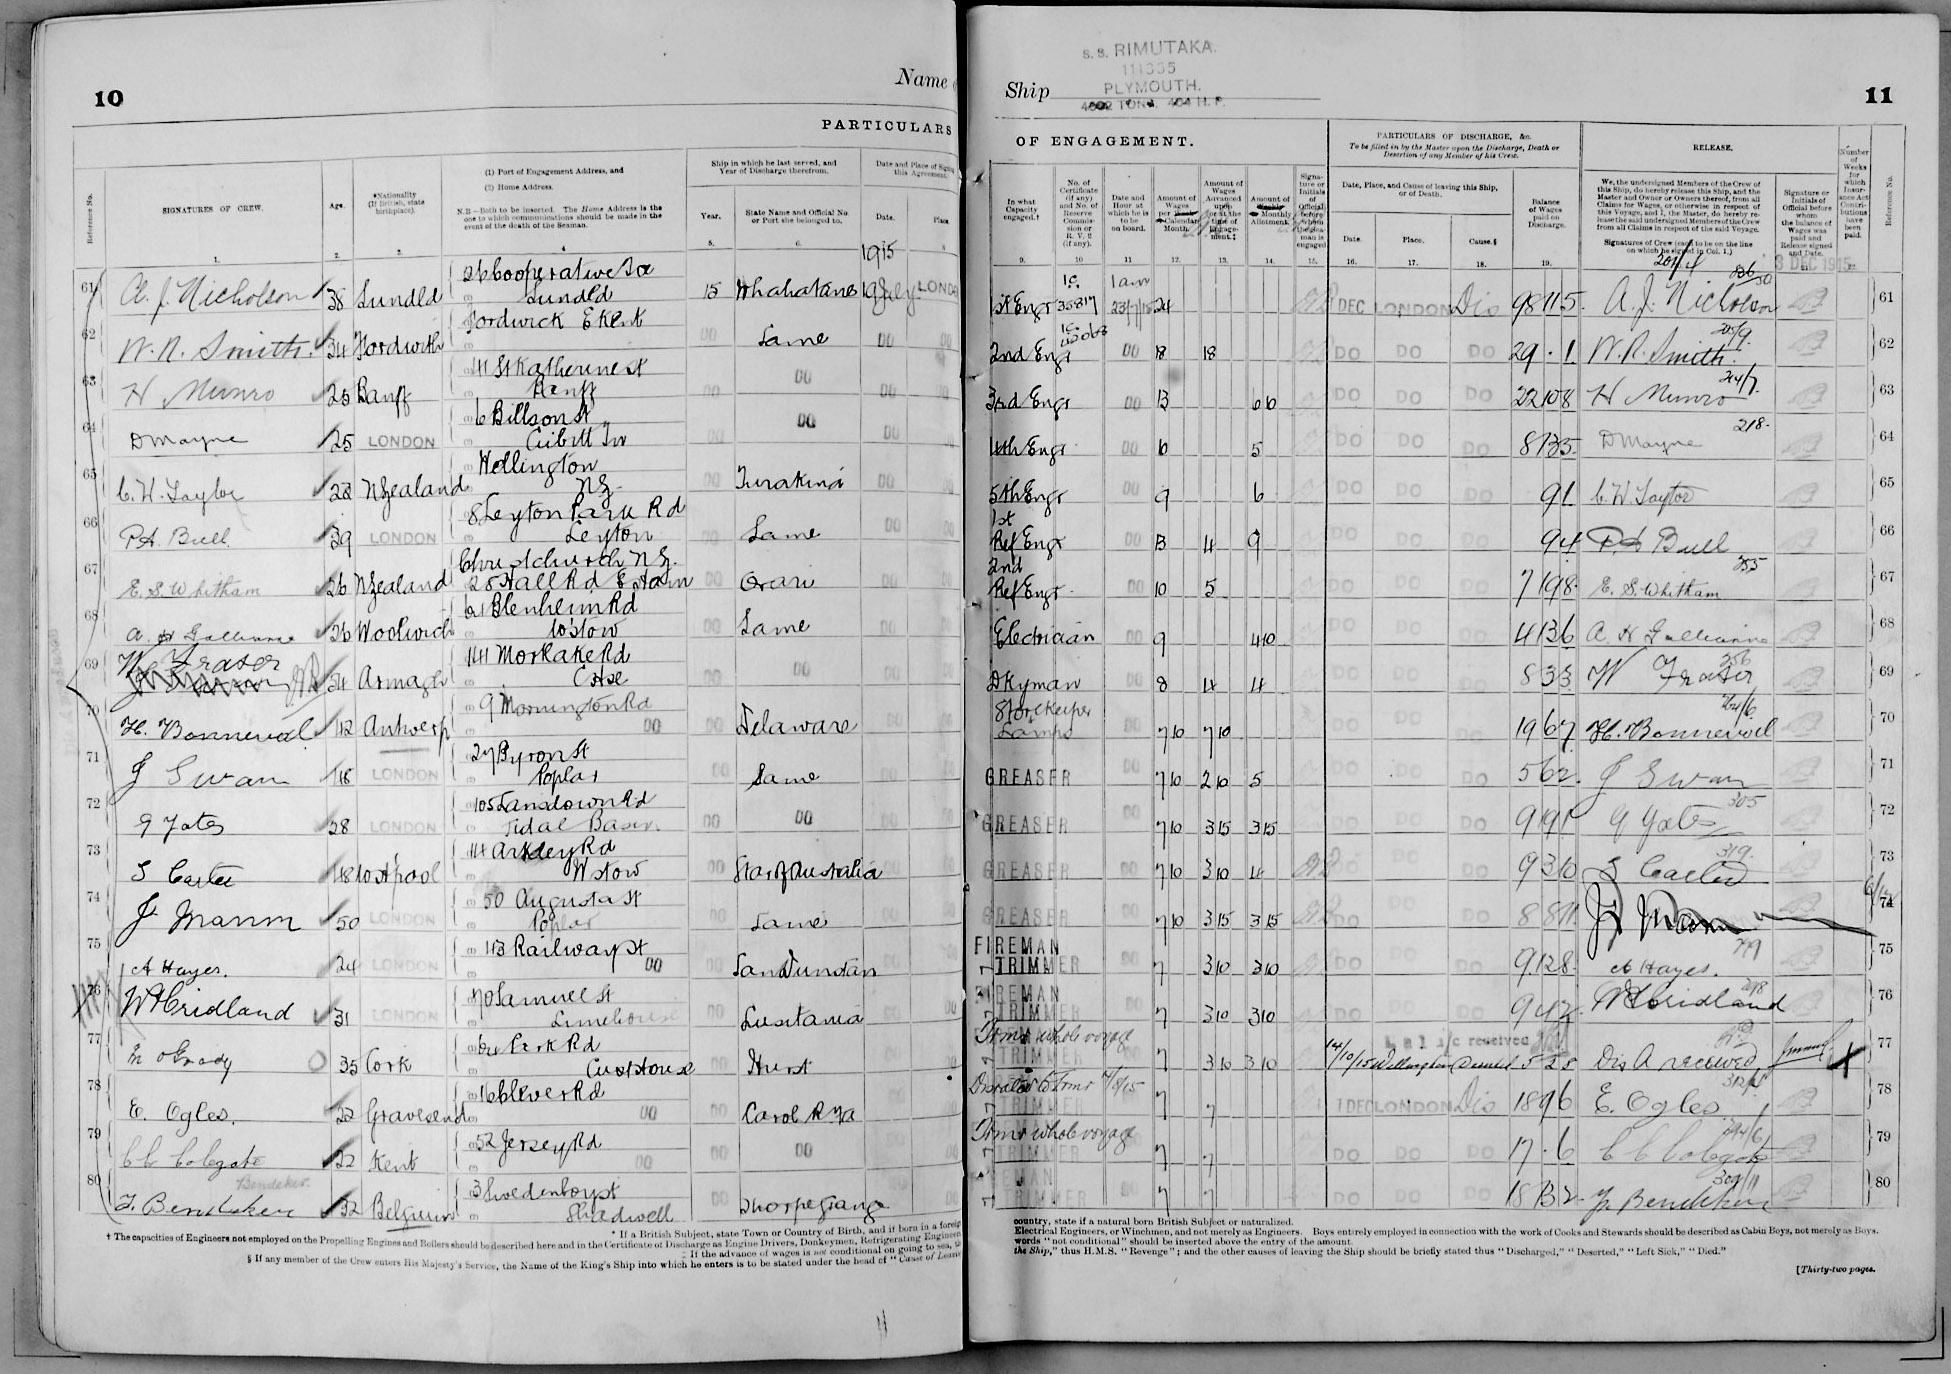 10
Name
PARTICULARS
Reference No.
SIGNATURES OF CREW.
Age.
*Nationality
(If British, state
birthplace).
(1) Port of Engagement Address, and
(2) Home Address.
N.B.—Both to be inserted. The Home Address is the
one to which communications should be made in the
event of the death of the Seaman.
Ship in which he last served, and
Year of Discharge therefrom.
Year.
State Name and Official No.
or Port she belonged to.
Date and Place of Signing
this Agreement.
Date.
Place.
1. 2. 3. 4. 5. 6. 8
1915
61 A. J. Nicholson 38 Sundld 26 Cooperative Ter
Sundld 15 Whakatane LONDO
62 W. R. Smith. 34 Fordwich Fordwich E Kent
DO Same DO DO
63 H Munro 25 Banff 41 St Katherine St
Banff DO DO DO DO
64 D Mayne 25 LONDON 6 Billson St
Cubitt Tn DO DO DO
65 C. W. Taylor 22 N Zealand Wellington
NZ. DO Turakina DO DO
66 P.A. Bull 39 LONDON 8 Leyton Park Rd
Leyton DO Same DO DO
67 E. S. Whitham 26 N Zealand Christchurch N Z.
28 Hall Rd E Ham DO Orari DO DO
68 26 Woolwich 21 Blenheim Rd
W'stow DO Same DO DO
69 W. Fraser 34 Armagh 141 Morlake Rd
DO DO DO DO
70 H. Bonneval 42 Antwerp 9 Mornington Rd
DO DO Delaware DO DO
71 J Swan 48 LONDON 27 Byron St
Poplar DO Same DO DO
72 G Yates 28 LONDON 105 Lansdown Rd
Tidal Basin DO DO DO DO
73 S Carter 48 W Hartpool 114 Rd
W stow DO Star of Australia DO DO
74 J. Mann 50 LONDON 50 Augusta St
Poplar DO Same DO DO
75 A Hayes. 24 LONDON 113 Railway St
DO DO San Dunstan DO DO
76 W H Cridland 31 LONDON 70 Samuel St
Limehouse DO Lusitania DO DO
77 M O Grady 35 Cork 64 Park Rd
Cust House DO Hurst DO DO
78 E. Ogles. 22 Gravesend 16 Clever Rd
DO DO DO DO
79 C C Colegate 22 Kent 52 Jersey Rd
DO DO DO DO DO
80 Bendeker.
32 Belgium 3 Swedenborg St
Shadwell DO Thorpe Grange DO DO
* If a British Subject, state Town or Country of Birth, and if born in a foreign
† The capacities of Engineers not employed on the Propelling Engines and Boilers should be described here and in the Certificate of Discharge as Engine Drivers, Donkeymen, Refrigerating Engineers
‡ If the advance of wages is not conditional on going to sea, the
§ If any member of the Crew enters His Majesty's Service, the Name of the King's Ship into which he enters is to be stated under the head of "Cause of Leaving
Ship
S. S. RIMUTAKA.
111355
PLYMOUTH.
11
OF ENGAGEMENT.
PARTICULARS OF DISCHARGE, &c.
To be filled in by the Master upon the Discharge, Death or
Desertion of any Member of his Crew.
RELEASE.
In what
Capacity
engaged.†
No. of
Certificate
(if any)
and No. of
Reserve
Commis-
sion or
R. V. 2
(if any).
Date and
Hour at
which he is
to be
on board.
Amount of
Wages
per
Calendar
Month.
Amount of
Wages
Advanced
upon
or at the
time of
Engage-
ment.‡
Amount of
Monthly
Allotment.
Signa-
ture or
Initials
of
Official
before
whom
the Sea-
man is
engaged
Date, Place, and Cause of leaving this Ship,
or of Death.
Date.
Place.
Cause.§
Balance
of Wages
paid on
Discharge.
We, the undersigned Members of the Crew of
this Ship, do hereby release this Ship, and the
Master and Owner or Owners thereof, from all
Claims for Wages, or otherwise in respect of
this Voyage, and I, the Master, do hereby re-
lease the said undersigned Members of the Crew
from all Claims in respect of the said Voyage.
Signatures of Crew (each to be on the line
on which he signed in Col. 1.)
Signature or
Initials of
Official before
whom
the balance of
Wages was
paid and
Release signed
and Date.
Number
of
Weeks
for
which
Insur-
ance Act
Contri-
butions
have
been
paid.
Reference No.
9. 10 11 12. 13. 14. 15. 16. 17. 18. 19.
DEC 1915
1st Engr 35817 1 am 23/7/15 24 DEC LONDON Dis 98 11 5 A. J. Nicholson 61
2nd Engr DO 18 18 DO DO DO 29 . 1 W. R. Smith. 62
3rd Engr DO 13 DO DO DO 22 10 8 H Munro 63
4th Engr DO 10 5 DO DO DO 8 13 5 218. D Mayne 64
5th Engr DO 9 6 DO DO DO 9 1 C. W. Taylor 65
1st
Ref Engr DO 13 4 9 DO DO DO 9 4 P A Bull 66
2nd
Ref Engr DO 10 5 DO DO DO 7 19 8 E. S. Whitham 67
Electrician DO 9 4 10 DO DO DO 4 13 6 68
Dkyman DO 8 4 4 DO DO DO 8 3 3 W Fraser 69
Storekeeper
Lamps DO 7 10 7 10 DO DO DO 19 6 7 H. Bonneval 70
GREASER DO 7 10 2 10 5 DO DO 5 6 2 J Swan 71
GREASER DO 7 10 3 15 3 15 DO DO DO 9 19 1 305 G Yates 72
GREASER DO 7 10 3 10 4 DO DO DO 9 3 10 319. S Carter 73
GREASER DO 7 10 3 15 3 15 DO DO DO 8 8 11 J. Mann 74
FIREMAN
TRIMMER DO 7 3 10 3 10 DO DO DO 9 12 8 A Hayes. 75
FIREMAN
TRIMMER DO 7 3 10 3 10 DO DO DO 9 4 2 W H Cridland 76
Trmr whole voyage
TRIMMER 7 3 10 3 10 14/10/15 Wellington Deserted 5 2 5 Dis A received 77
Bal i/c received
TRIMMER DO 7 7 1 DEC LONDON Dis 18 9 6 E. Ogles 78
Trmr whole voyage
TRIMMER DO 7 7 DO DO DO 17 . 6 C C Colegate 79
TRIMMER DO 7 7 DO DO DO 18 13 2 80
country, state if a natural born British Subject or naturalized.
Electrical Engineers, or Winchmen, and not merely as Engineers. Boys entirely employed in connection with the work of Cooks and Stewards should be described as Cabin Boys, not merely as Boys.
words "not conditional" should be inserted above the entry of the amount.
the Ship," thus H.M.S. "Revenge"; and the other causes of leaving the Ship should be briefly stated thus "Discharged," "Deserted," "Left Sick," "Died."
[Thirty-two pages.